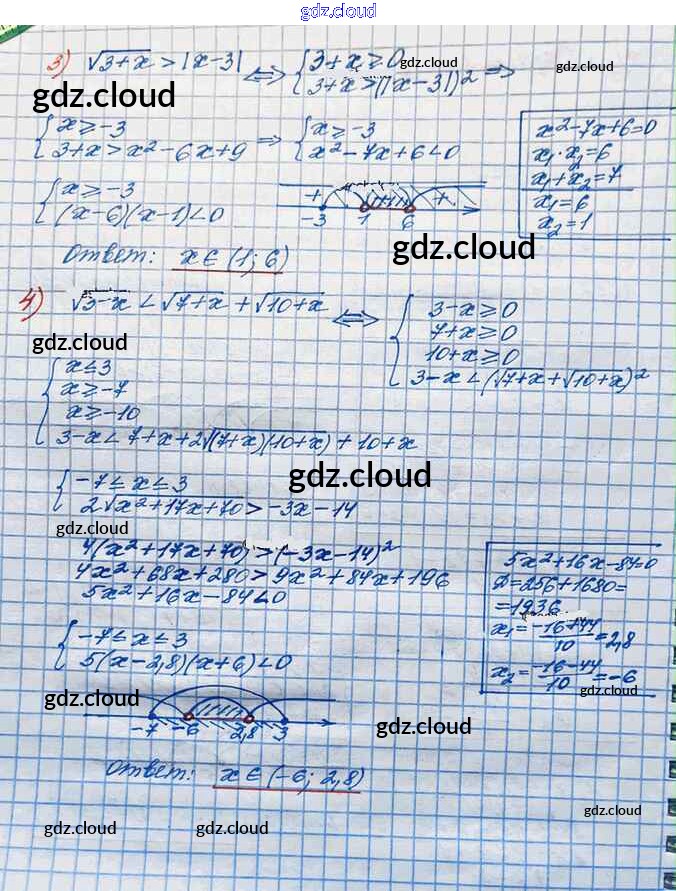 gdz.cloud
3) √(3+x) > |x-3| ⟺ { 3+x ≥ 0
{ 3+x > (|x-3|)² ⇒
gdz.cloud
gdz.cloud
gdz.cloud
{ x ≥ -3
{ 3+x > x²-6x+9 ⇒ { x ≥ -3
{ x²-7x+6<0
x²-7x+6=0
x₁·x₂=6
x₁+x₂=7
x₁=6
x₂=1
{ x ≥ -3
{ (x-6)(x-1)<0
+ - +
-3 1 6
gdz.cloud
Ответ: x∈(1;6)
gdz.cloud
4) √(3-x) < √(7+x) + √(10+x) ⟺ { 3-x ≥ 0
7+x ≥ 0
10+x ≥ 0
3-x < (√7+x+√10+x)²
gdz.cloud
gdz.cloud
{ x ≤ 3
x ≥ -7
x ≥ -10
3-x < 7+x+2√((7+x)(10+x)) + 10+x
gdz.cloud
{ -7 ≤ x ≤ 3
2√(x²+17x+70) > -3x-14
gdz.cloud
4(x²+17x+70) > (-3x-14)²
4x²+68x+280 > 9x²+84x+196
5x²+16x-84<0
5x²+16x-84=0
D=256+1680=
=1936
x₁=(-16+44)/10=2,8
x₂=(-16-44)/10=-6
gdz.cloud
{ -7 ≤ x ≤ 3
5(x-2,8)(x+6)<0
gdz.cloud
-7 -6 2,8 3
gdz.cloud
Ответ: x∈(-6; 2,8)
gdz.cloud
gdz.cloud
gdz.cloud